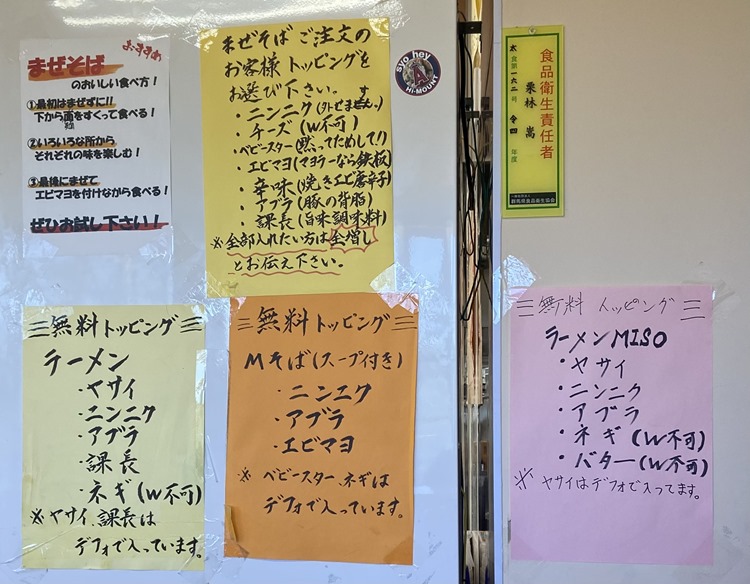 おすすめ
まぜそば
のおいしい食べ方！
①最初はまぜずに!!
下から麺をすくって食べる！
②いろいろな所から
それぞれの味を楽しむ！
③最後にまぜて
エビマヨを付けながら食べる！
ぜひお試し下さい！
まぜそばご注文の
お客様トッピングを
お選び下さい。
・ニンニク(外せます)
・チーズ(W不可)
・ベビースター(黙ってためして!!)
・エビマヨ(マヨラーなら鉄板)
・辛味(焼きエビ唐辛子)
・アブラ(豚の背脂)
・課長(旨味調味料)
※全部入れたい方は全増し
とお伝え下さい。
syo hey
Hi-MOUNT
食品衛生責任者
栗林 嵩
太食第一六二号 令四年度
一般社団法人
群馬県食品衛生協会
三無料トッピング三
ラーメン
・ヤサイ
・ニンニク
・アブラ
・課長
・ネギ(W不可)
※ヤサイ、課長は
デフォで入っています。
三無料トッピング三
Mそば(スープ付き)
・ニンニク
・アブラ
・エビマヨ
※ベビースター、ネギは
デフォで入ってます。
三無料トッピング三
ラーメンMISO
・ヤサイ
・ニンニク
・アブラ
・ネギ(W不可)
・バター(W不可)
※ヤサイはデフォで入ってます。